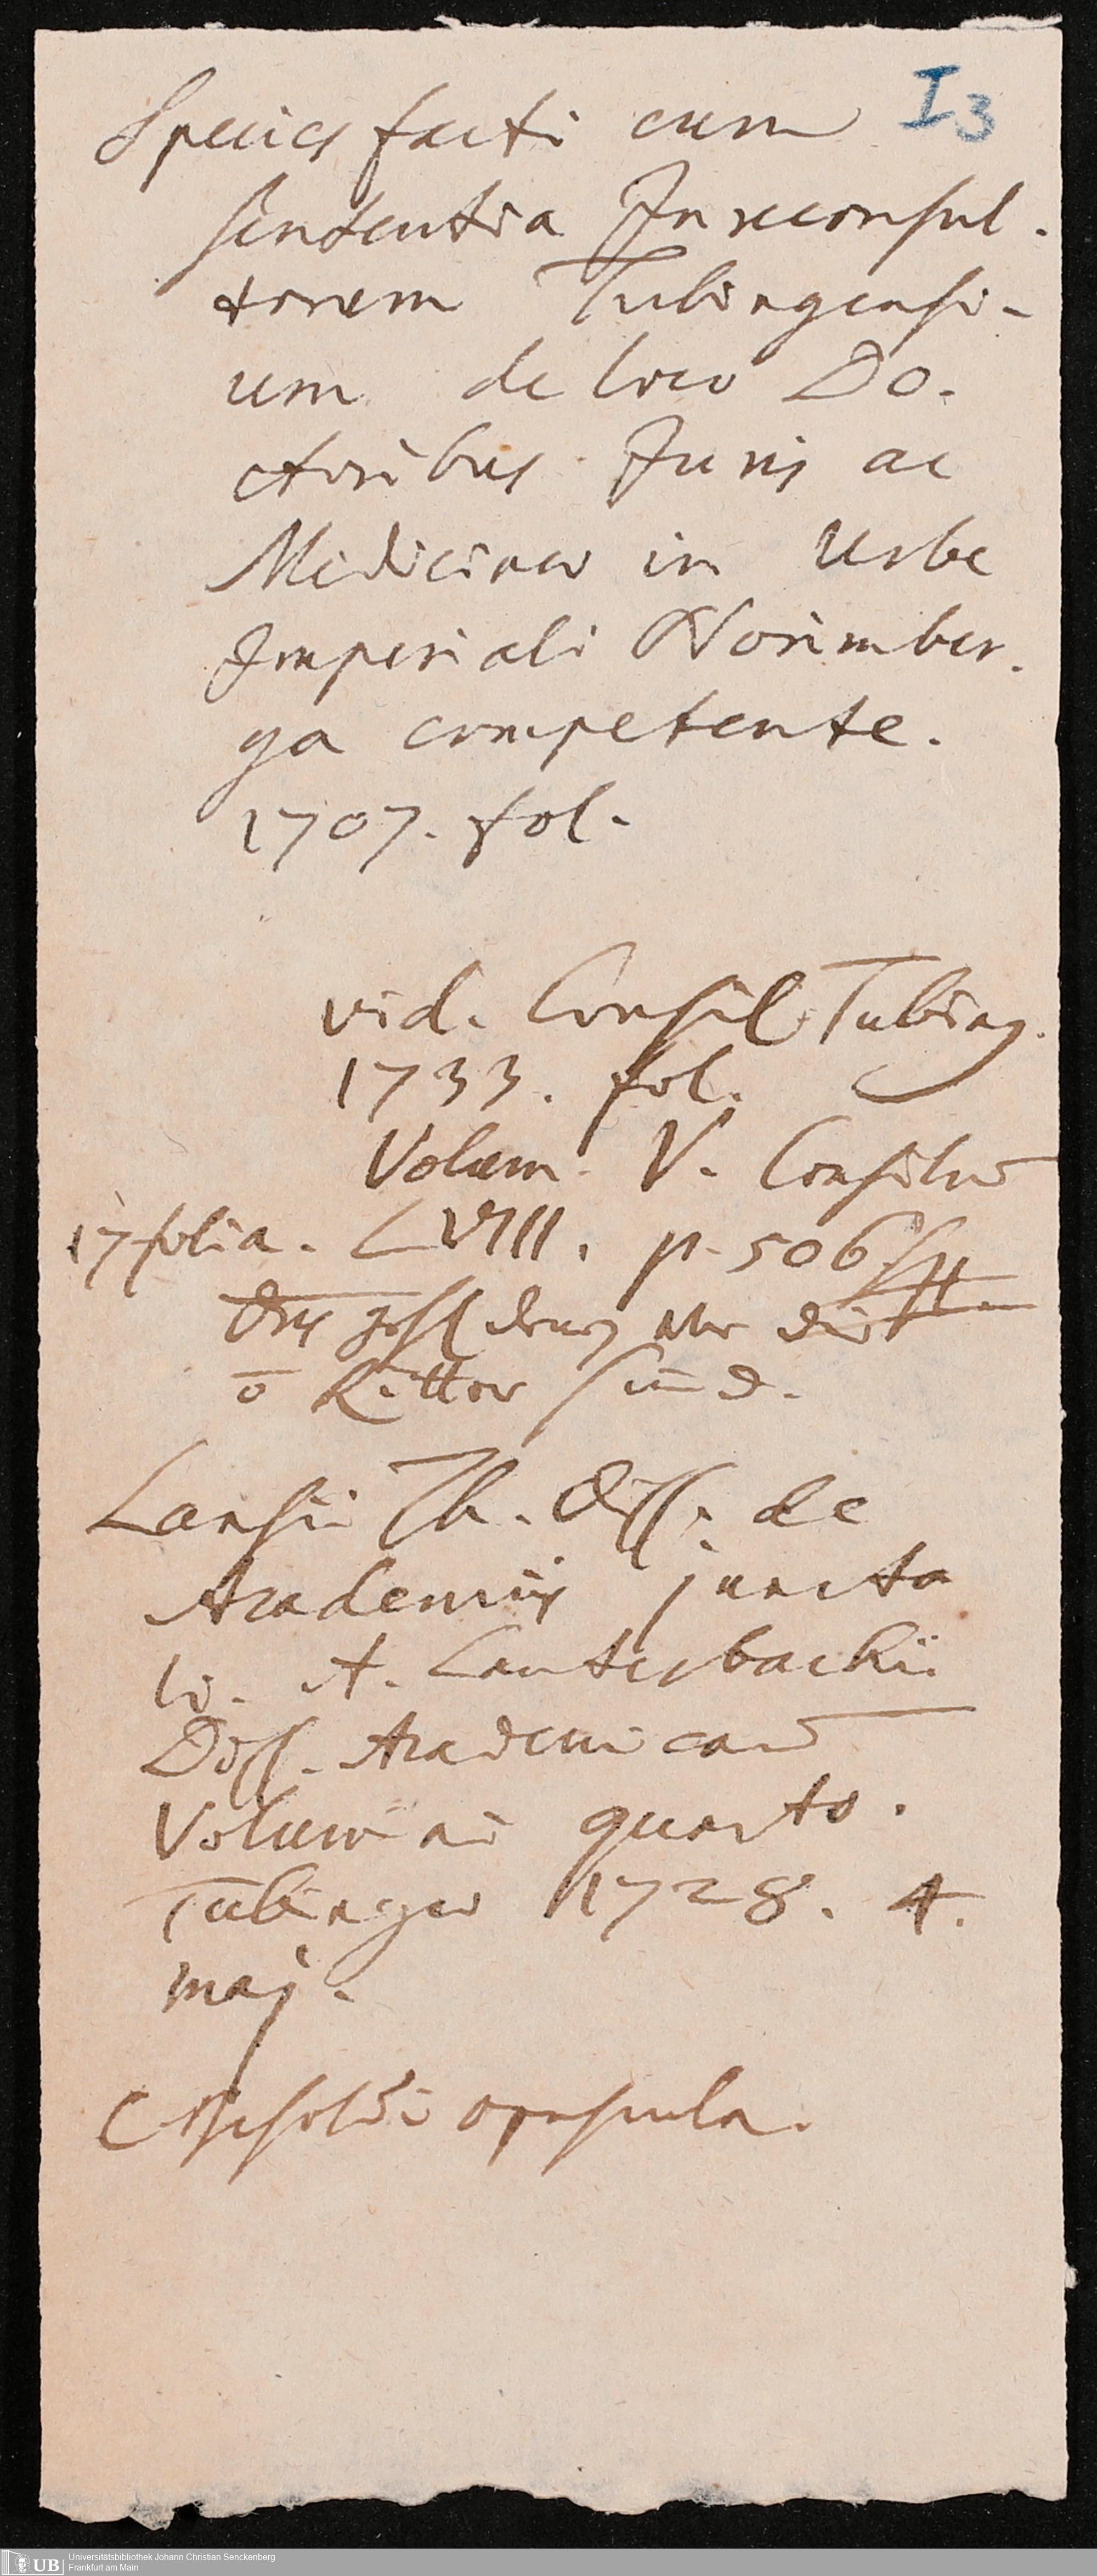 I3
Species facti cum
sententia Jureconsul-
torum Tubingensi-
um de loco Do-
ctoribus Juris ac
Medicinae in Urbe
Imperiali Norimber-
ga competente.
1707. fol.
vid. Consil. Tubing.
1733. fol.
Volum. V. Consiliu
17 folia. LVIII. p. 506 sqq
der
o Ritter sind.
Lansii Th. Diss. de
Academiis juncta
W. A. Lauterbachii
Diss. Academicar
Volumini quarto.
Tubingae 1728. 4.
maj.
C Besoldi opuscula.
UB Universitätsbibliothek Johann Christian Senckenberg
Frankfurt am Main